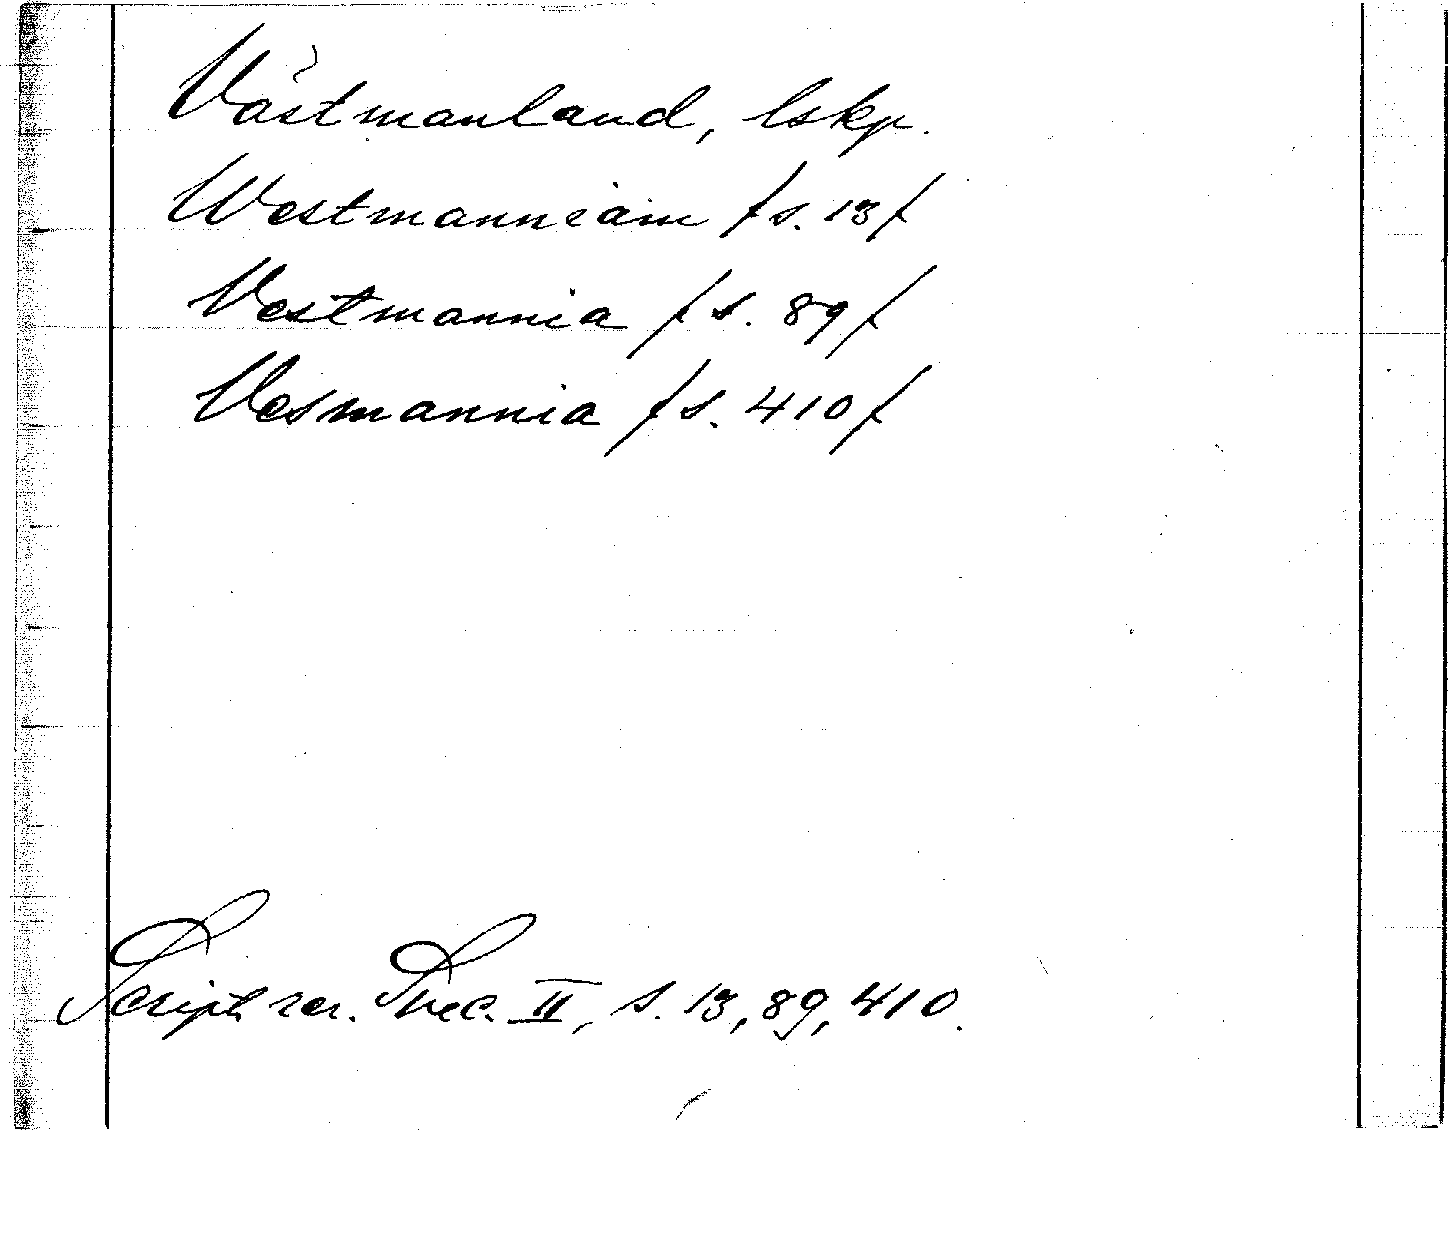 Västmanland, lskp.
Westmanniam /s. 13/
Vestmannia /s. 89/
Vesmannia /s. 410/
Script. rer. Svec. II, s. 13, 89, 410.